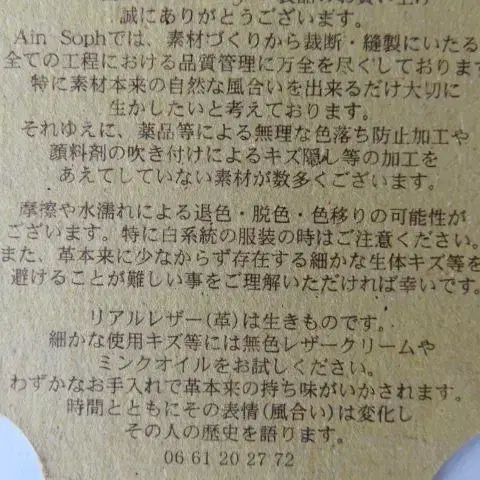 製品のお買い上げ
誠にありがとうございます。
Ain Sophでは、素材づくりから裁断・縫製にいたる
全ての工程における品質管理に万全を尽くしております
特に素材本来の自然な風合いを出来るだけ大切に
生かしたいと考えております。
それゆえに、薬品等による無理な色落ち防止加工や
顔料剤の吹き付けによるキズ隠し等の加工を
あえてしていない素材が数多くございます。
摩擦や水濡れによる退色・脱色・色移りの可能性が
ございます。特に白系統の服装の時はご注意ください。
また、革本来に少なからず存在する細かな生体キズ等を
避けることが難しい事をご理解いただければ幸いです。
リアルレザー(革)は生きものです。
細かな使用キズ等には無色レザークリームや
ミンクオイルをお試しください。
わずかなお手入れで革本来の持ち味がいかされます。
時間とともにその表情(風合い)は変化し
その人の歴史を語ります。
06 61 20 27 72